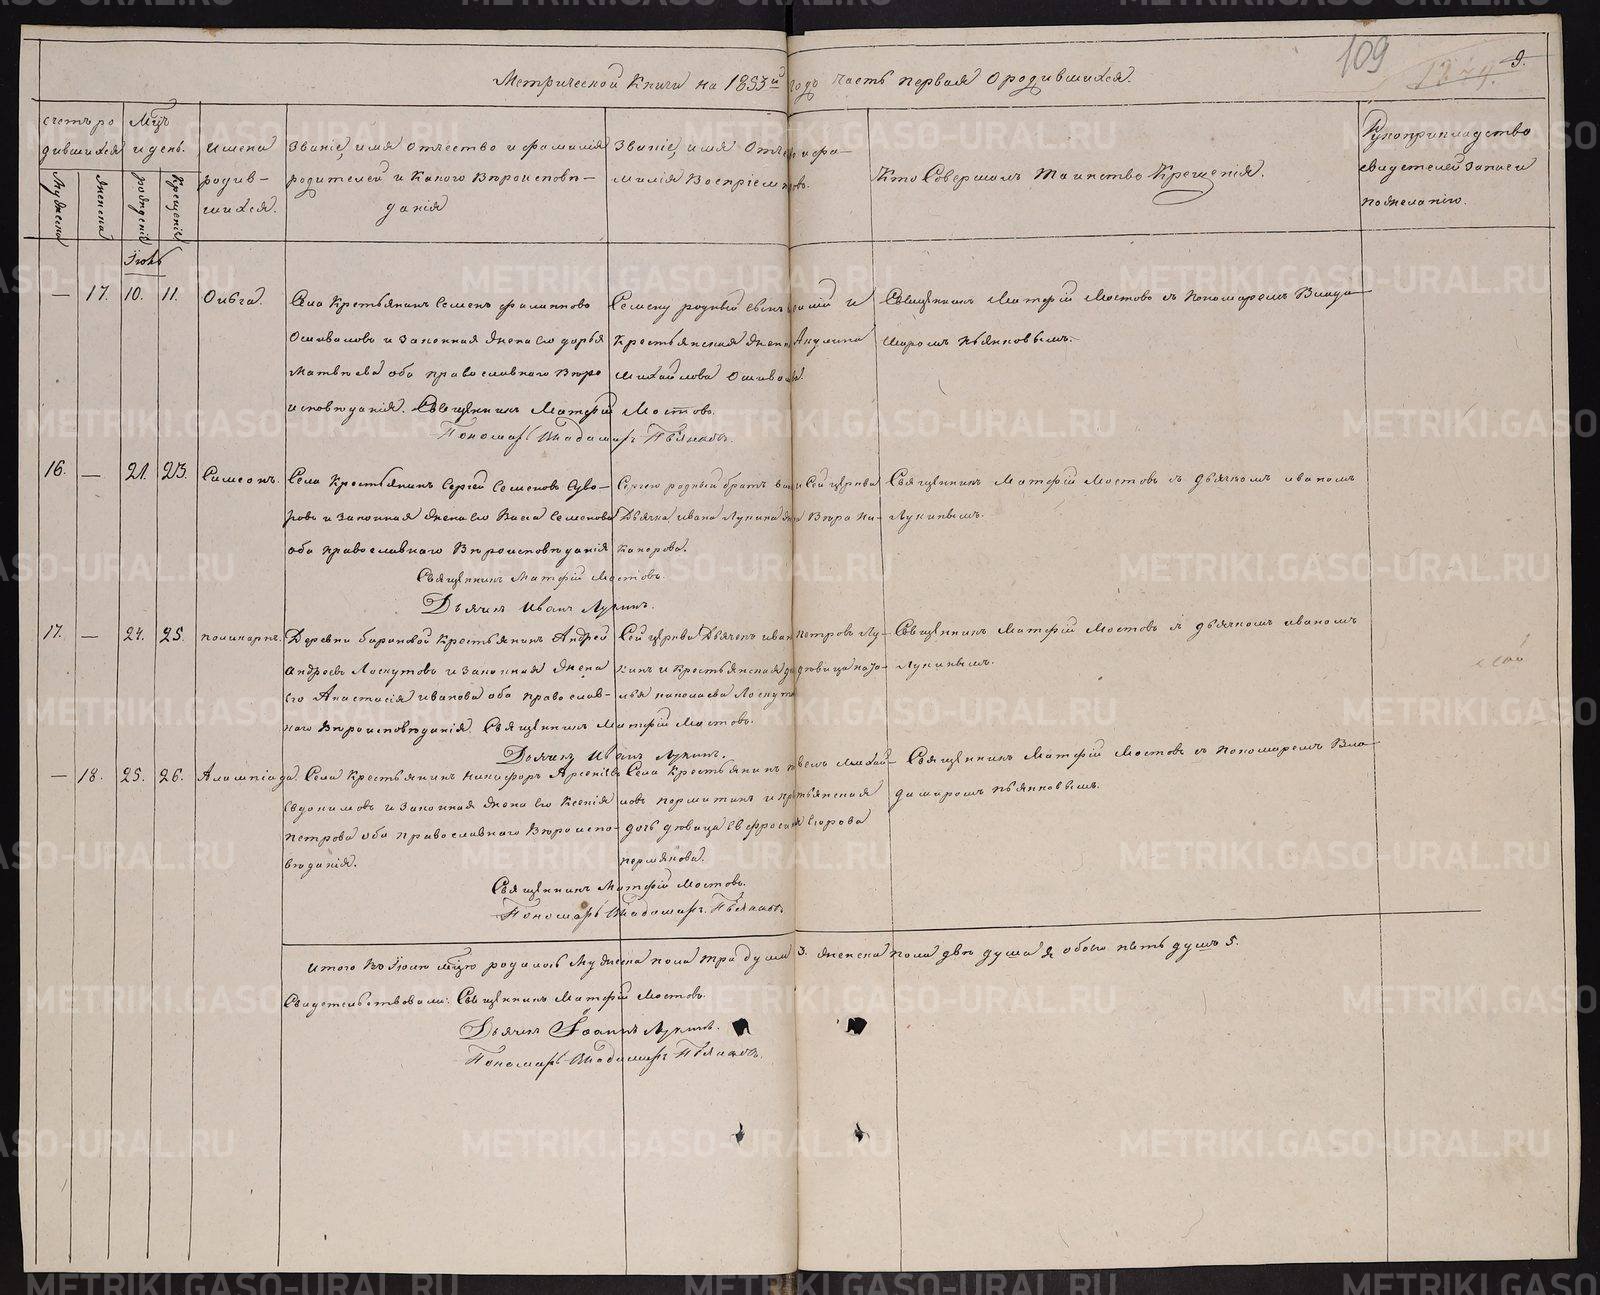 109
9.
Метрической Книги на 1853й годъ часть первая О родившихся.
счетъ ро
дившихся
Мцъ
и день.
Мужеска
Женска
рожденія
Крещенія
имена
родив-
шихся.
Званіе, имя отчество и фамилія
родителей и Какого Вѣроисповѣ-
данія
Званіе, имя Отчес и фа-
милія Воспріемниковъ.
Кто Совершалъ Таинство Крещенія.
Рукоприкладство
свидетелей записи
по желанію.
Іюнь
— 17. 10. 11. Ольга.
Села Крестьянинъ Семенъ Филиппово
и законная жена его дарья
Матвѣева оба православнаго Вѣро
исповѣданія. Священникъ Матфій Мостовъ.
Пономарь Владимиръ Пьянковъ.
Семену родный
Крестьянская жена Акулина
Михайлова
Священникъ Матфій Мостовъ съ пономаремъ Влади-
миромъ Пьянковымъ.
16. — 21. 23. Симеонъ.
Села Крестьянинъ Сергей Семеновъ Суво-
ровъ и законная жена его Васса Семенова
оба православнаго Вѣроисповѣданія
Священникъ Матфій Мостовъ.
Дьячекъ Иванъ Лукинъ.
Сергею родный братъ и Сей церкви
Дьячка ивана Лукина жена Вѣра Ни-
канорова.
Священникъ Матфій Мостовъ съ дьячкомъ иваномъ
Лукинымъ.
17. — 24. 25. поликарпъ.
Деревни бараковой Крестьянинъ Андрей
Андреевъ Лоскутовъ и законная жена
его Анастасія иванова оба православ-
наго Вѣроисповѣданія. Священникъ Матфій Мостовъ.
Дьячекъ Иванъ Лукинъ.
Сей церкви Дьячекъ иванъ петровъ Лу-
кинъ и Крестьянская дѣвица
николаева Лоскутова
Священникъ Матфій Мостовъ съ дьячкомъ иваномъ
Лукинымъ.
— 18. 25. 26. Алимпіада.
Села Крестьянинъ Никифоръ Арсеніевъ
Евдокимовъ и Законная жена его Ксенія
Петрова оба православнаго Вѣроиспо-
вѣданія.
Священникъ Матфій Мостовъ.
Пономарь Владимиръ Пьянковъ.
Села Крестьянинъ павелъ Михай-
ловъ пермякинъ и крестьянская
дочь дѣвица Евфросинія Егорова
пермякова.
Священникъ Матфій Мостовъ съ пономаремъ Вла-
димиромъ Пьянковымъ.
итого въ Іюнѣ мцѣ родилось Мужеска пола три души 3. женска пола двѣ душы 2, обоего пять душъ 5.
Свидетельствовали: Священникъ Матфій Мостовъ.
Дьячекъ Іоаннъ Лукинъ.
Пономарь Владимиръ Пьянковъ.
METRIKI.GASO-URAL.RU